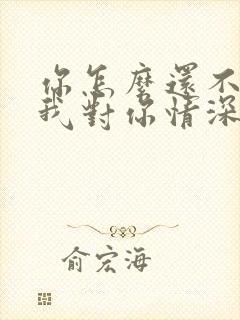 你怎麼還不
我對你情深
俞宏海